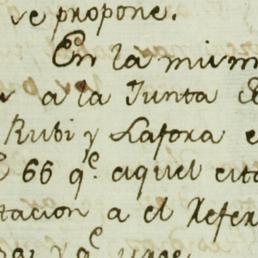 se propone.
En la mism
a la Junta
Rubi y Lafora e
66 q.e aquel cita
tacion a el Refer